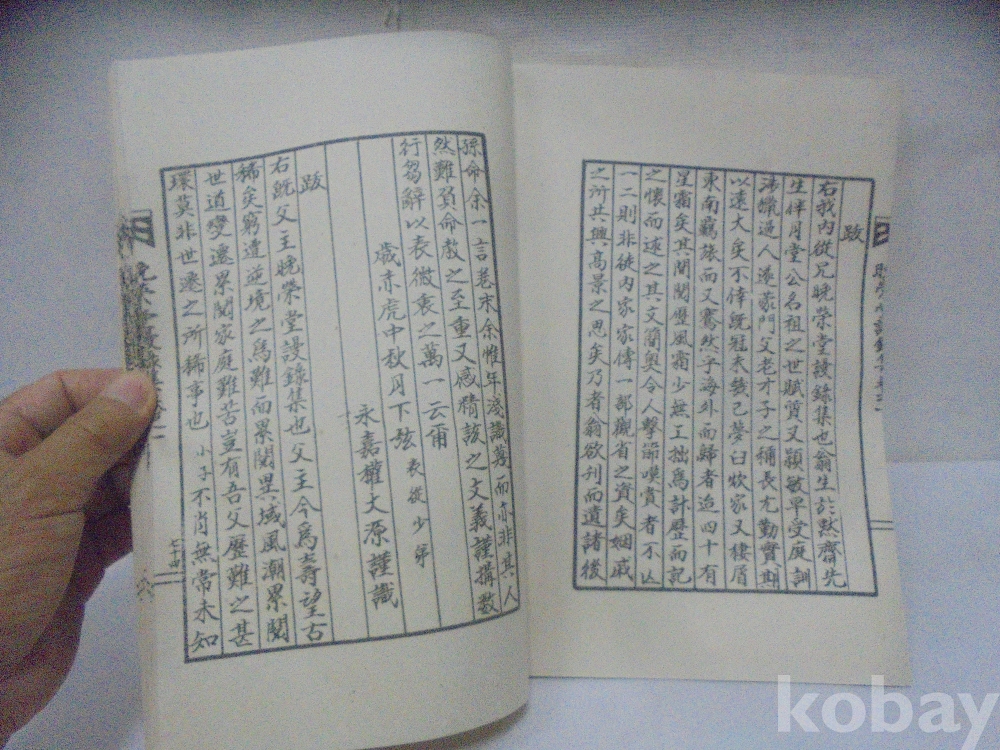 跋
右我內從兄晩榮堂謾錄集也翁生於默齋先
生伴月堂公名祖之世賦質又頴敏早受庭訓
涉獵過人遂蒙門父老才子之稱長尤勤實期
以遠大矣不倖旣冠未幾已夢臼炊家又棲屑
東南羈旅而又騖然乎海外而歸者迨四十有
星霜矣其間閱歷風霜少無工拙爲計歷而記
之懷而述之其文簡奧令人擊節嘆賞者不
一二則非徒內家家傳一部觀省之資矣姻戚
之所共興高景之思矣乃者翁欲刊而遺諸後
孫命余一言卷末余惟年淺識蔑而亦非其人
然難負命敎之至重又感精該之文義謹搆數
行芻辭以表微衷之萬一云爾
歲赤虎中秋月下弦 表從少弟
永嘉權大源謹識
跋
右旣父主晩榮堂謾錄集也父主今爲壽望古
稀矣窮遺逆境之爲難而累閱異域風潮累閱
世道變遷累閱家庭難苦豈有吾父歷難之甚
環莫非世遷之所稀事也 小子不肖無常未知
七十四
kobay